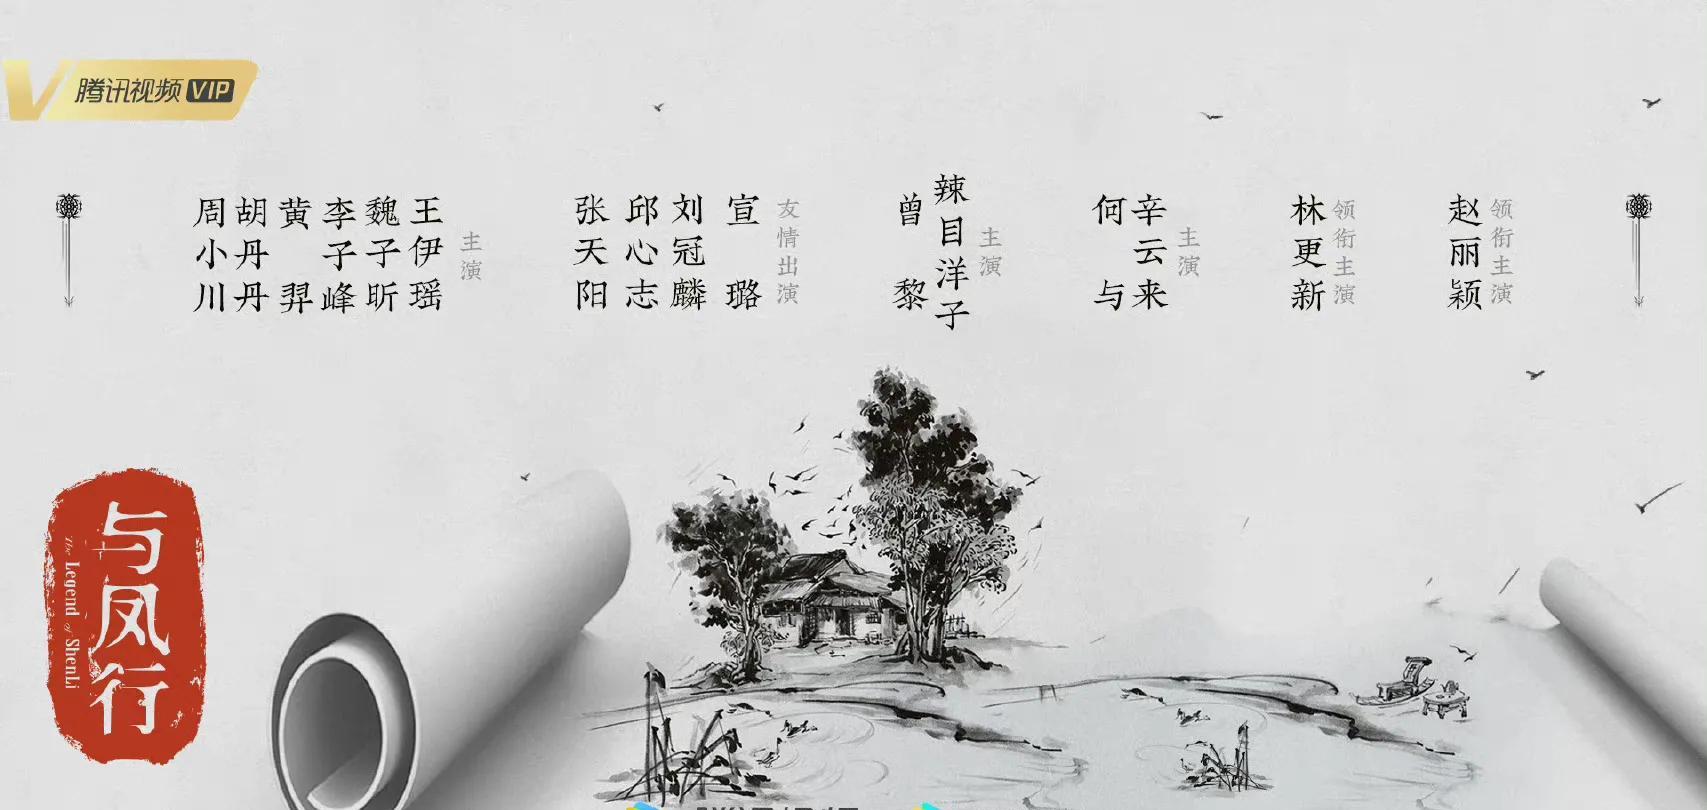 腾讯视频 VIP
领衔主演
赵丽颖
领衔主演
林更新
主演
辛云来
何与
主演
辣目洋子
曾黎
友情出演
宣璐
刘冠麟
邱心志
张天阳
主演
王伊瑶
魏子昕
李子峰
黄羿
胡丹丹
周小川
与凤行
The Legend of ShenLi